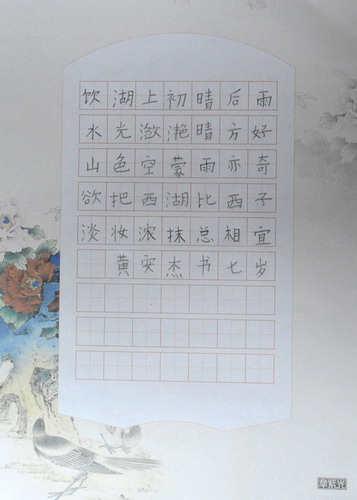 饮湖上初晴后雨
水光潋滟晴方好
山色空蒙雨亦奇
欲把西湖比西子
淡妆浓抹总相宜
黄安杰书七岁
章紫光